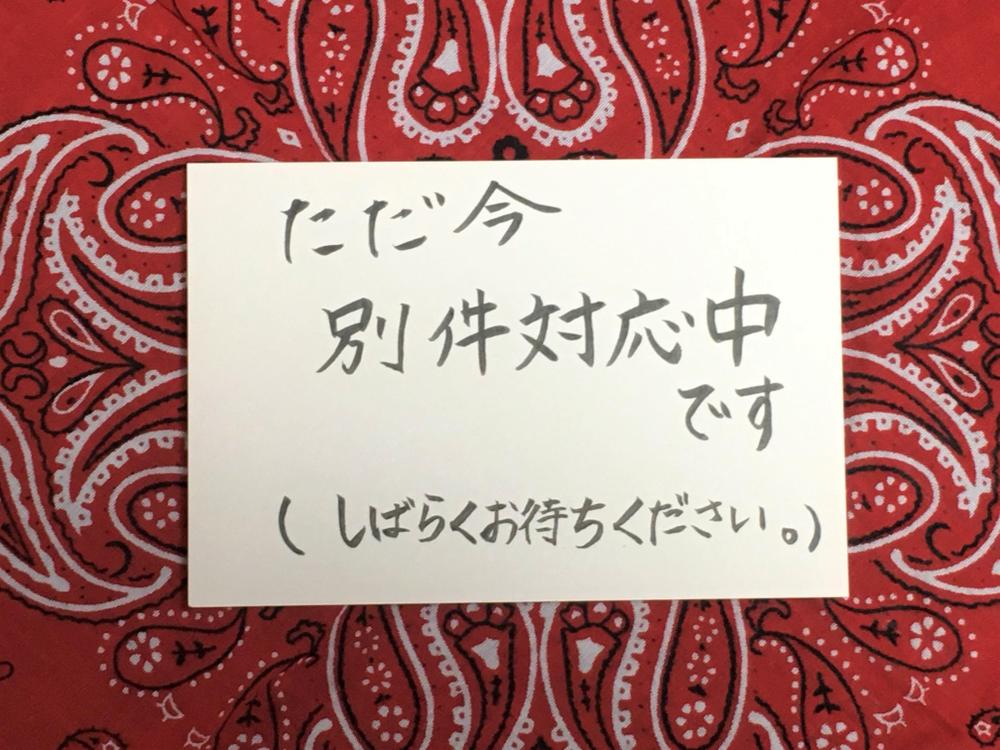 ただ今
別件対応中
です
(しばらくお待ちください。)